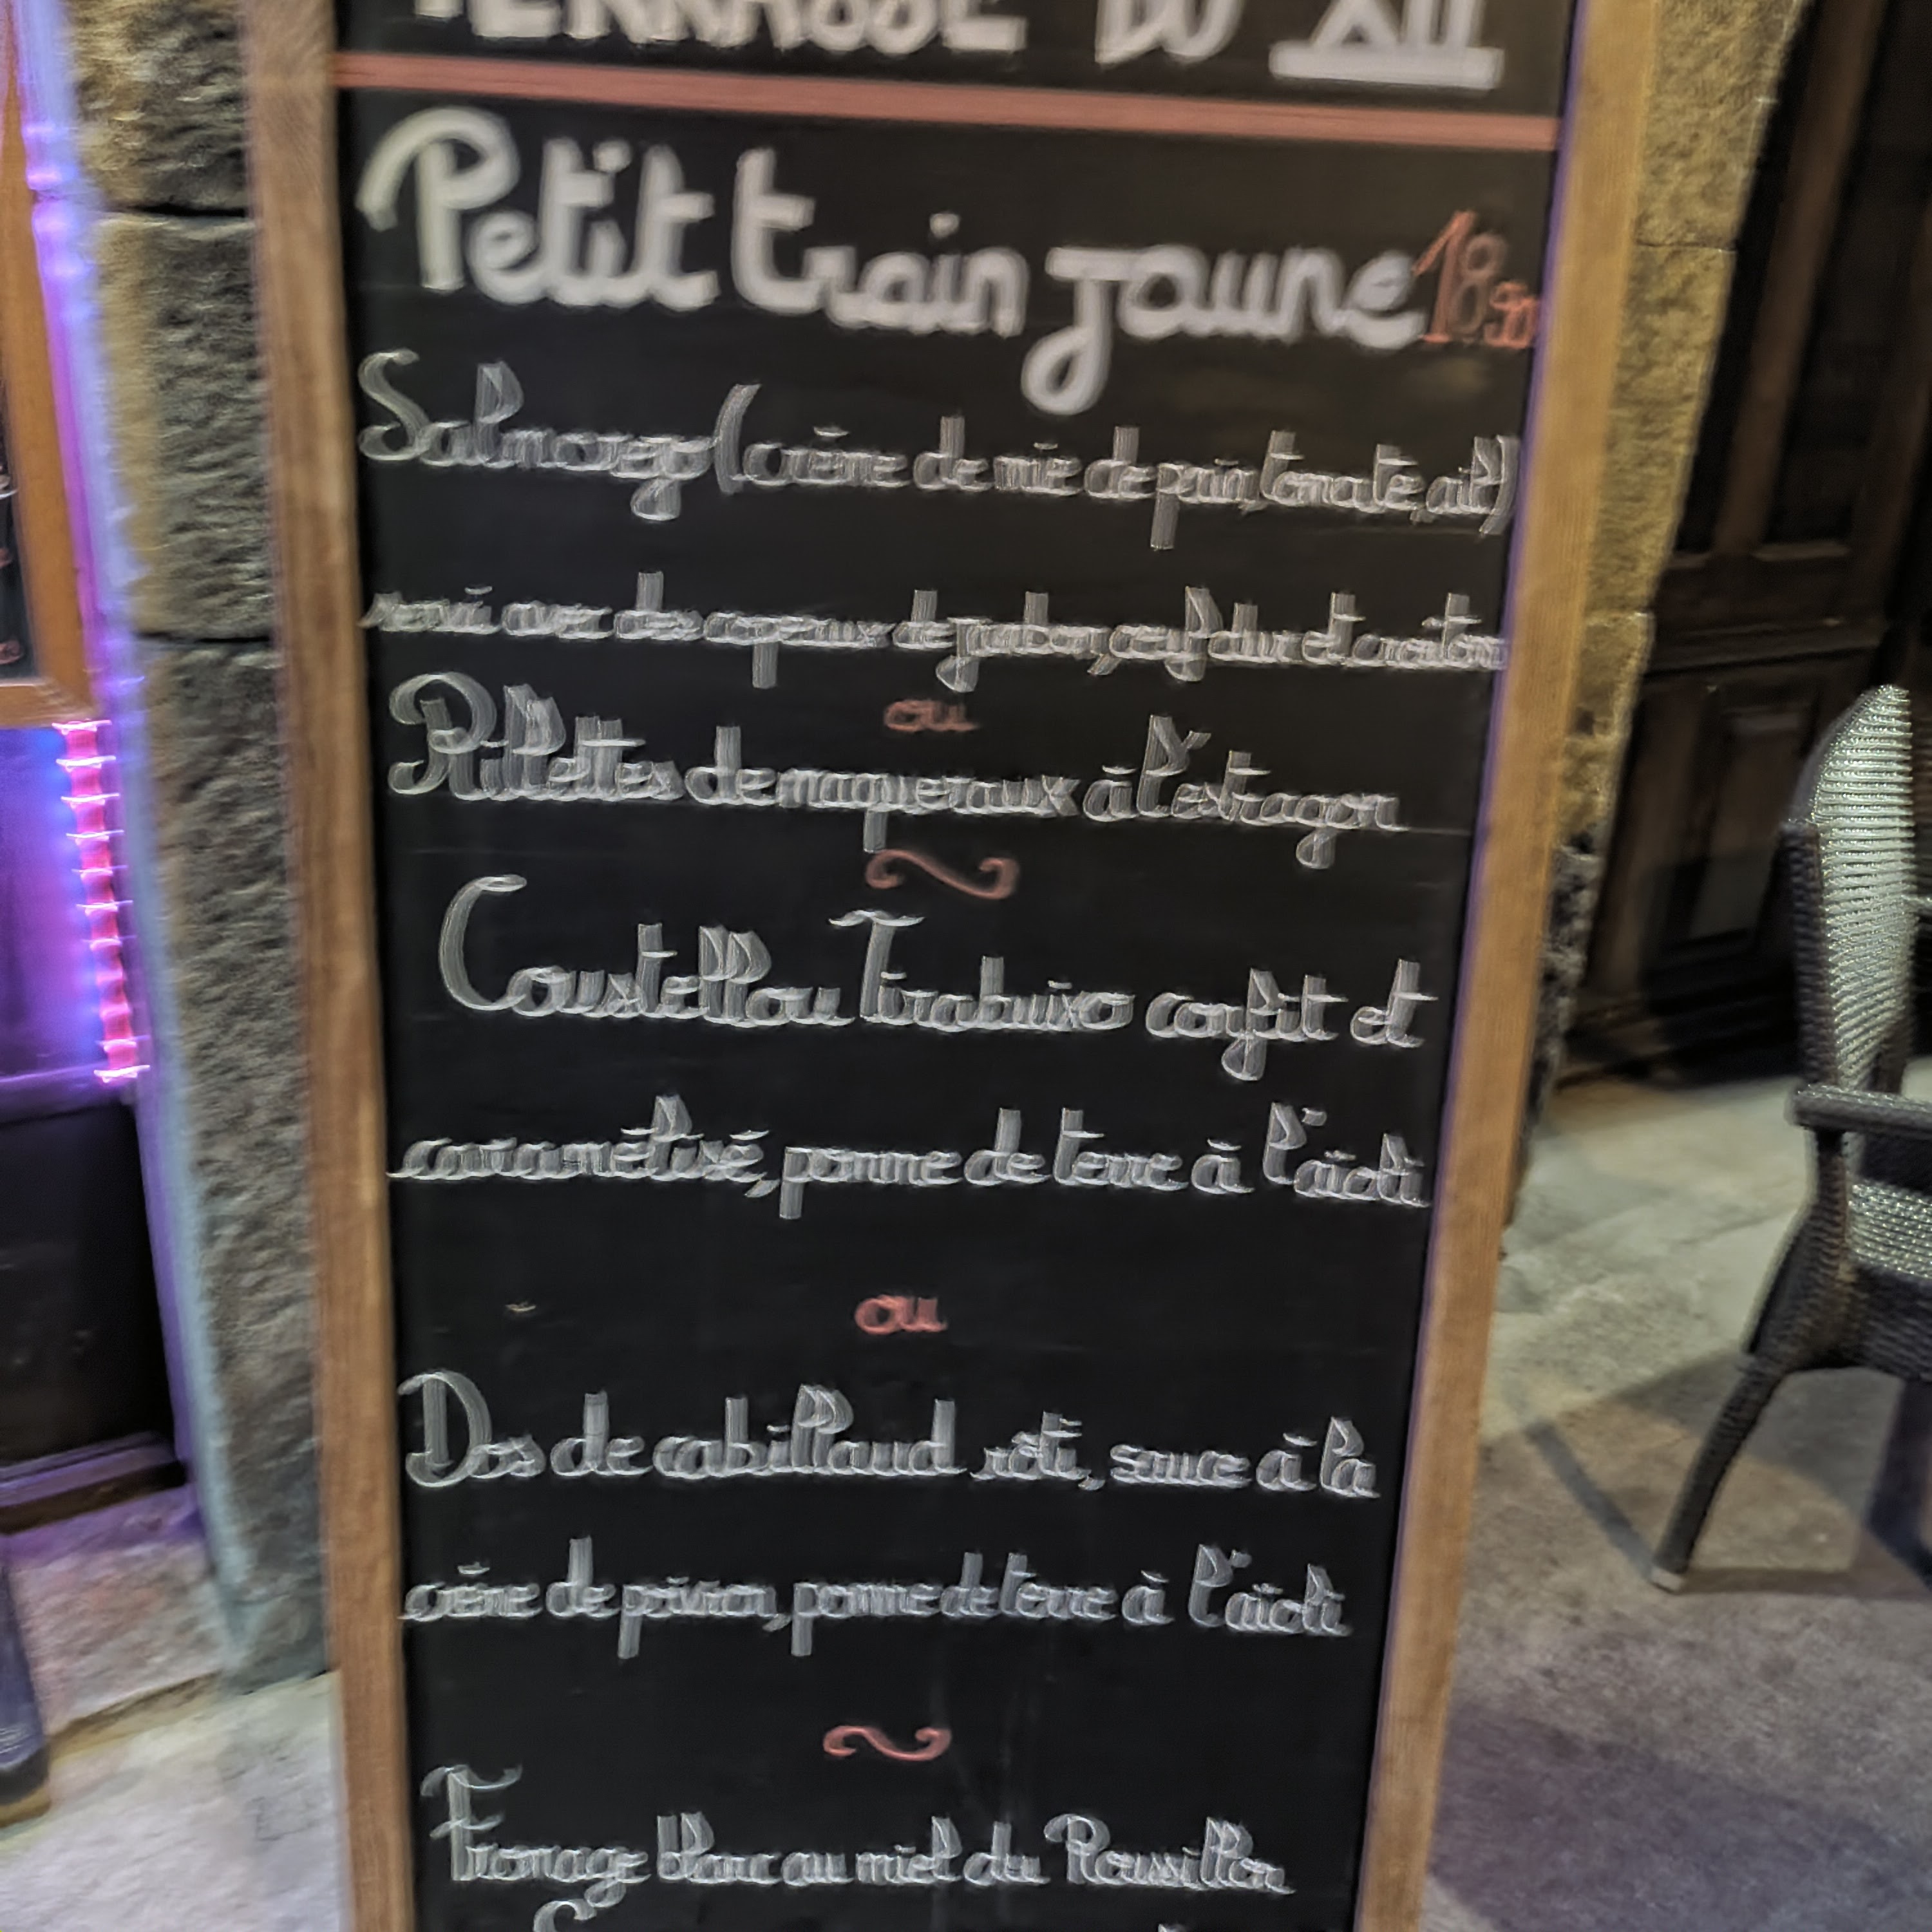 TERRASSE DU XII
Petit train jaune 18.50
Salmorejo (crème de mie de pain, tomate, ail)
servi avec des copeaux de jambon, oeuf dur et croûtons
ou
Rillettes de maquereaux à l'estragon
Coustellou Tirabuixo confit et
caramélisé, pomme de terre à l'aïoli
ou
Dos de cabillaud rôti, sauce à la
crème de poivron, pomme de terre à l'aïoli
Fromage blanc au miel du Roussillon